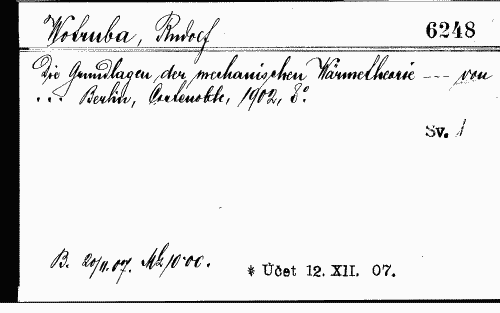 Wotruba, Rudolf
6248
Die Grundlagen der mechanischen Wärmetheorie --- von
... Berlin, 1902, 8°.
Sv. 1
B. 20/11.07. Mk 10·00.
* Účet 12. XII. 07.